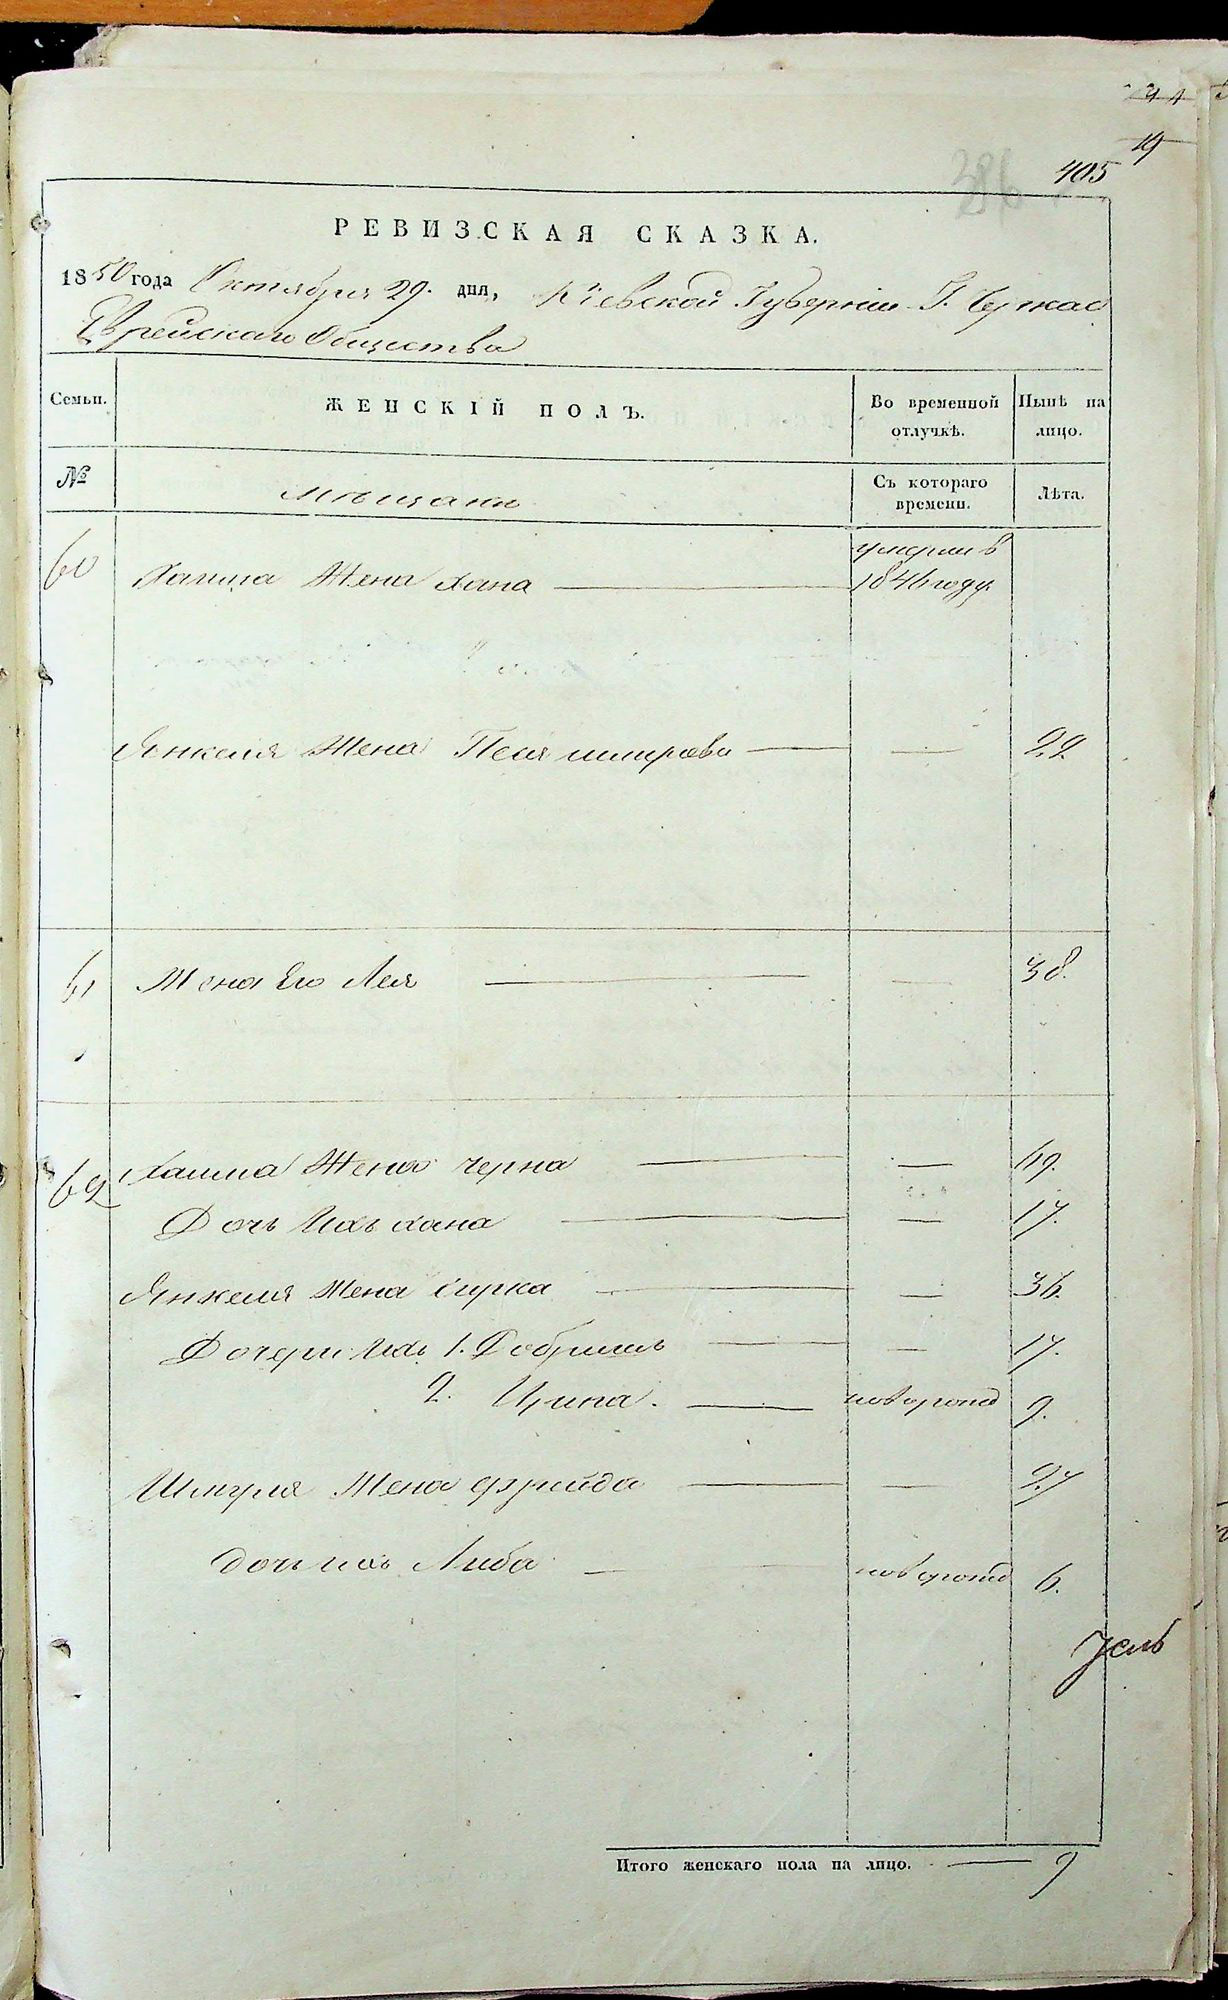 19
405
386
РЕВИЗСКАЯ СКАЗКА.
1850 года Октября 29. дня, Кіевской Губерніи Г. Черкас
Еврейскаго Общества
Семьи. ЖЕНСКІЙ ПОЛЪ. Во временной отлучкѣ. Нынѣ на лицо.
№ мѣщане Съ котораго времени. Лѣта.
60 Хаима Жена Хана умерли в 1846 году.
Янкеля Жена Песя 22
61 Жена Его Лея 38.
62 Хаима Жена черна 49.
Дочь Ихъ хана 17.
Янкеля Жена Сирка 36.
Дочери Ихъ 1. Добришъ 17.
2. Ципа. новорожд 9.
Шмуля Жена фрейда 27
дочь ихъ Либа новорожд 6.
Итого женскаго пола на лицо. 9